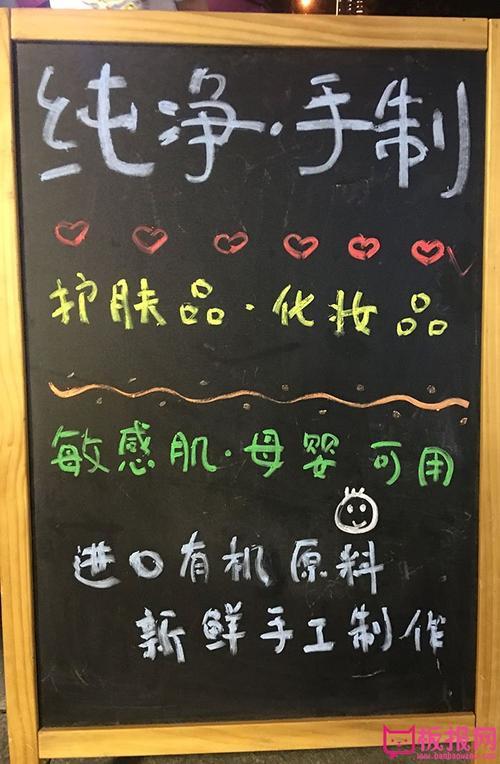 纯净·手制
护肤品·化妆品
敏感肌·母婴可用
进口有机原料
新鲜手工制作
板报网
www.banbaowang.com